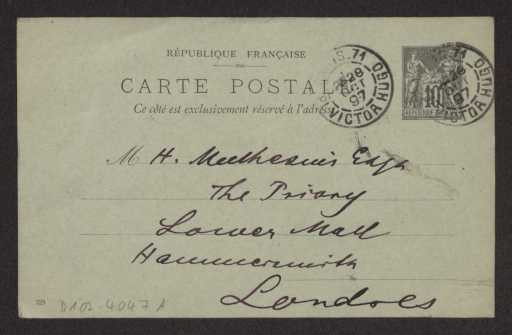 RÉPUBLIQUE FRANÇAISE
CARTE POSTALE
Ce côté est exclusivement réservé à l'adresse
PARIS. 71
28
OCT
97
Pl. VICTOR HUGO
10
M H. Muthesius Esqr
The Priory
Lower Mall
Hammersmith
Londres
D102-4047 A